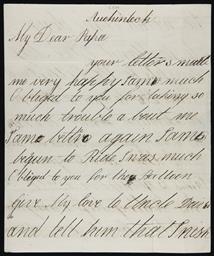 Auchinleck
My Dear Papa
your letters made
me very happy I am much
Obliged to you for taking so
much trouble about me
I am better again I am
begun to Ride I was much
Obliged to you for the
give My love to Uncle
and tell him that I